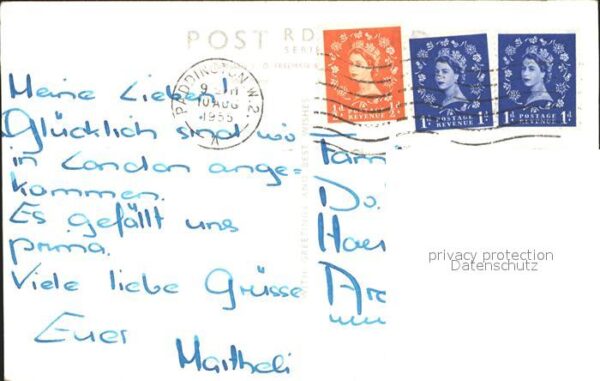 POST
RD
SERIE
PADDINGTON W.2.
10 AUG
1955
A
½d POSTAGE REVENUE ½d
1d POSTAGE REVENUE 1d
1d POSTAGE REVENUE 1d
Meine Lieben
Glücklich sind wir
in London ange-
kommen.
Es gefällt uns
prima.
Viele liebe Grüsse
Euer
WITH GREETINGS AND BEST WISHES
Fam
Do
Hau
privacy protection
Datenschutz